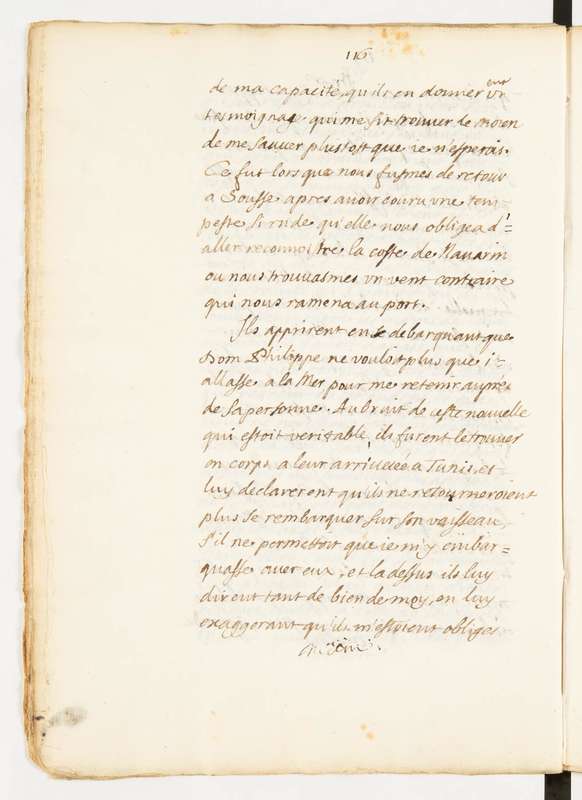 116
de ma capacité, qu'ils en donnerent vn
tesmoignage qui me fit trouuer le moien
de me sauuer plustost que ie n'esperois.
Ce fut lors que nous fusmes de retour
a Sousse apres auoir couru vne tem-
peste si rude qu'elle nous obligea d'=
aller reconnoitre la coste de Nauarin
ou nous trouuasmes vn vent contraire
qui nous ramena au port.
Ils apprirent en se debarquant que
Dom Philippe ne vouloit plus que i'-
allasse a la Mer pour me retenir auprés
de sa personne. Au bruit de ceste nouuelle
qui estoit veritable, ils furent le trouuer
en corps a leur arriueé a Tunis, et
luy declarerent qu'ils ne retourneroient
plus se rembarquer sur son vaisseau,
s'il ne permettoit que ie m'y embar=
quasse auec eux, et la dessus ils luy
dirent tant de bien de moy, en luy
exaggerant qu'ils m'estoient obligés